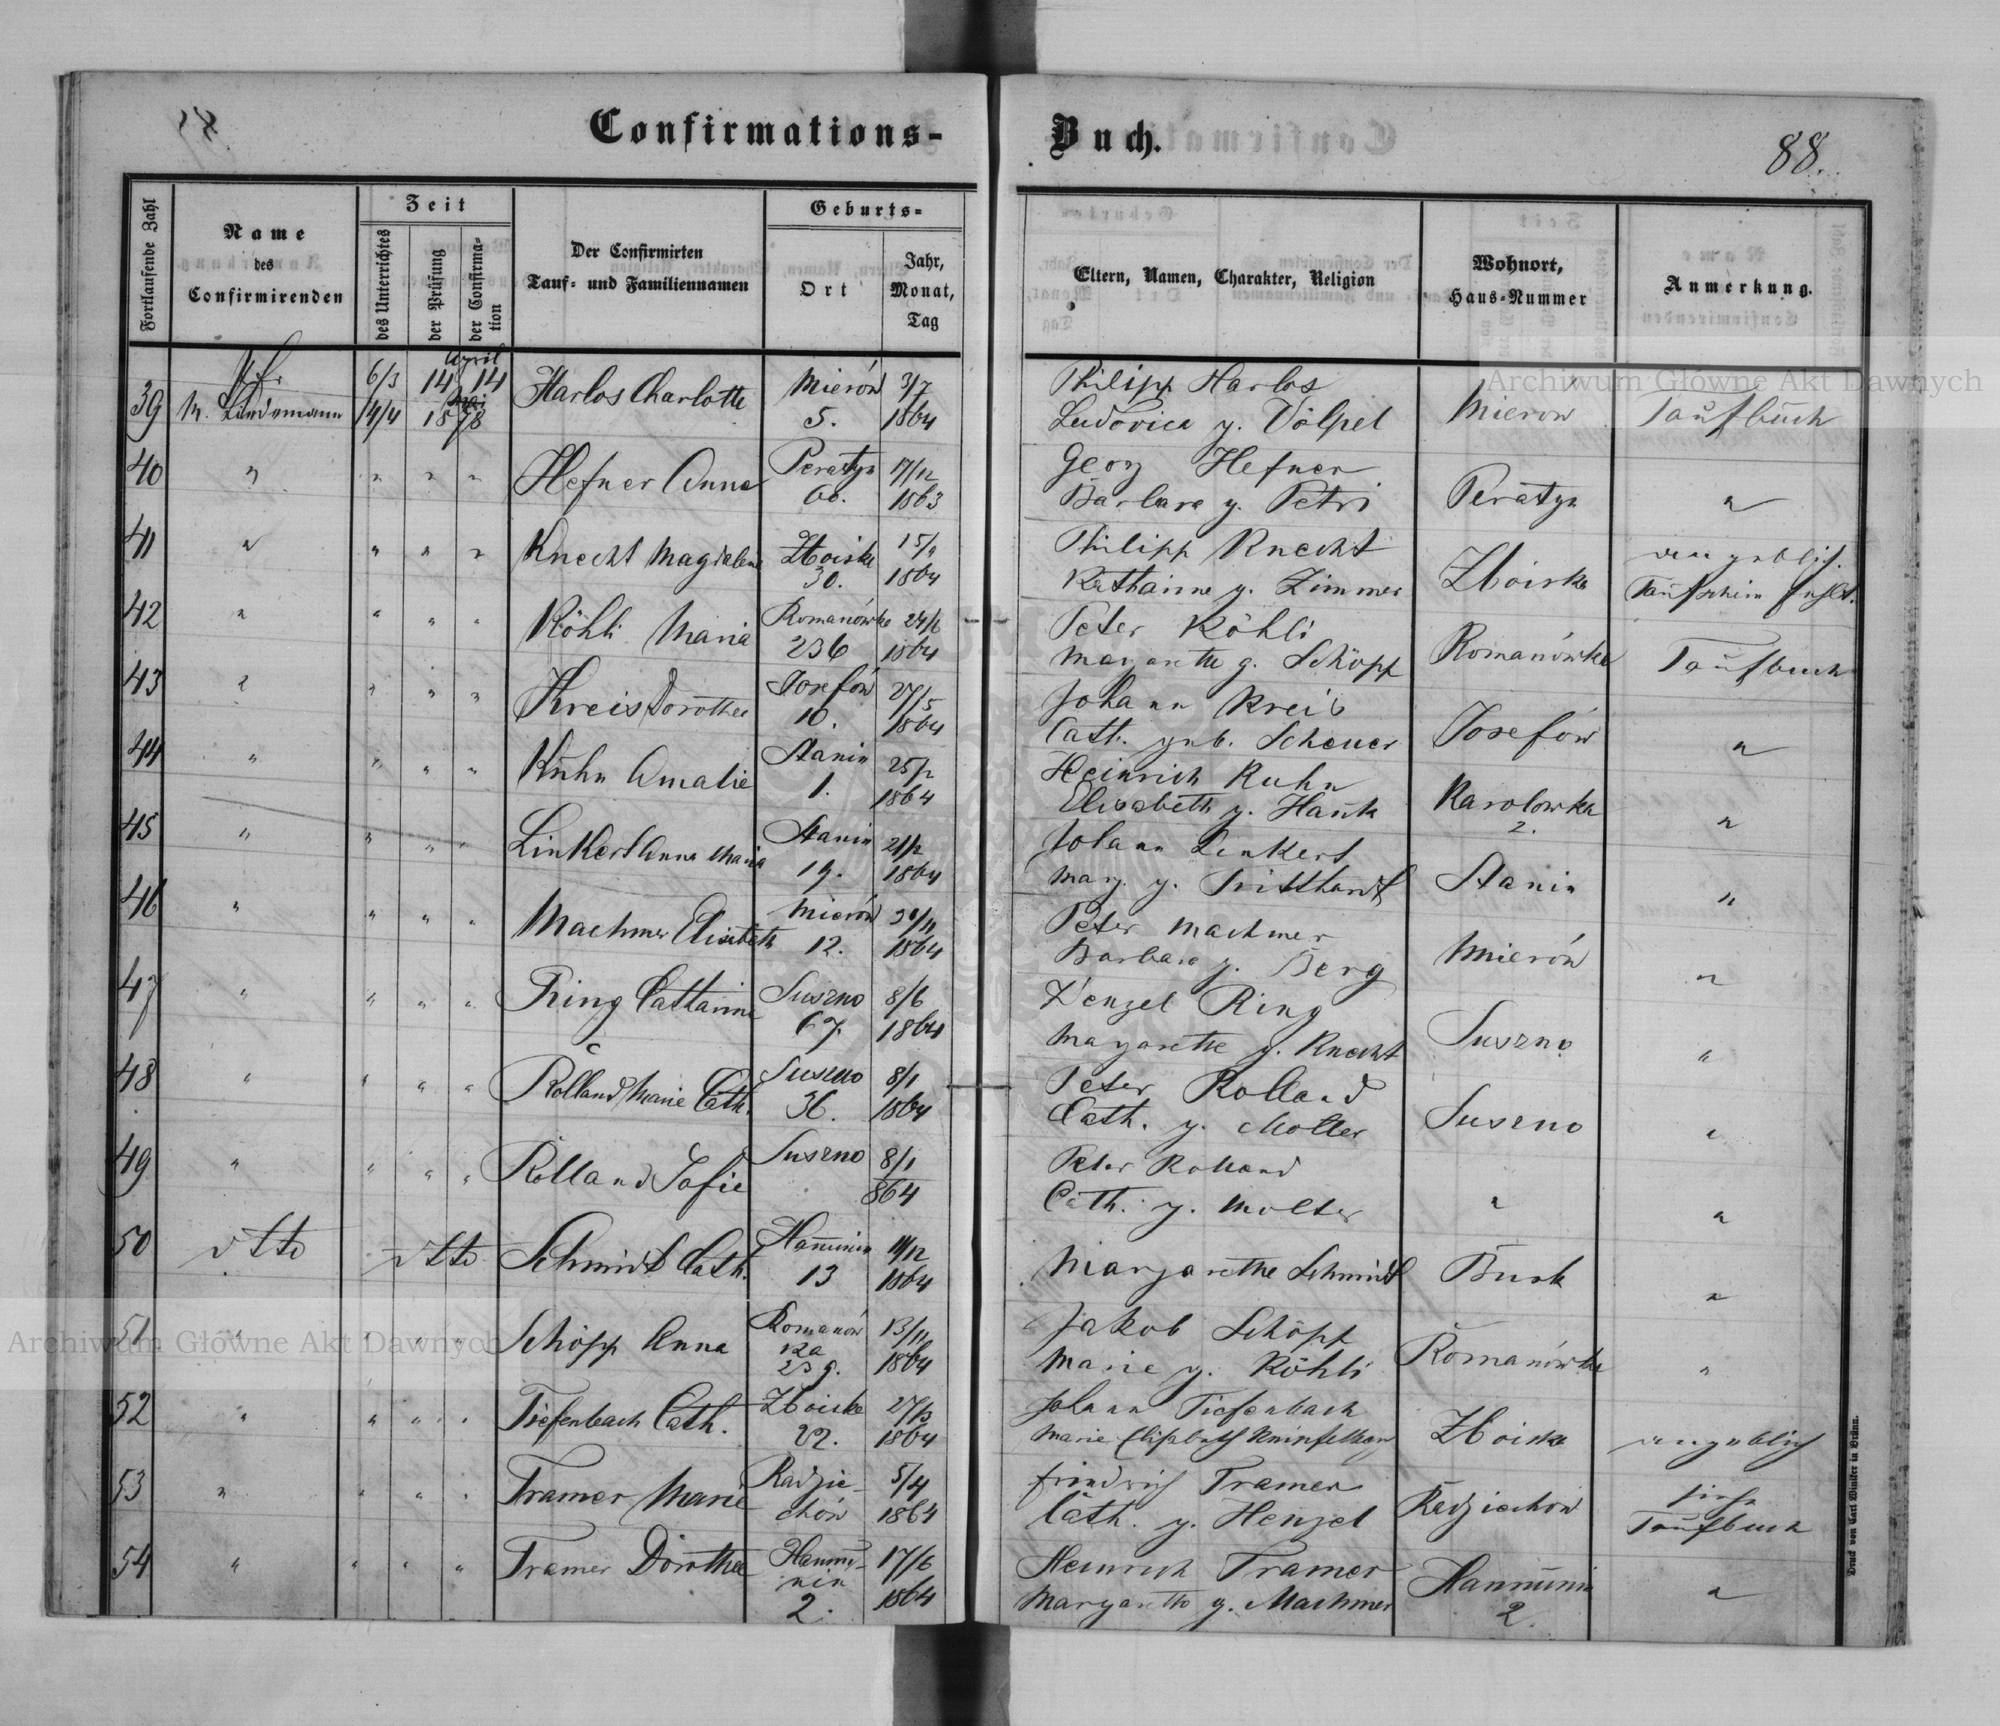 Confirmations-
Buch.
88.
Fortlaufende Zahl
Name
des
Confirmirenden
Zeit
des Unterrichtes
der Prüfung
der Confirma-
tion
Der Confirmirten
Tauf- und Familiennamen
Geburts-
Ort
Jahr,
Monat,
Tag
Eltern, Namen, Charakter, Religion
Wohnort,
Haus-Nummer
Anmerkung.
39
M. Lindemann
6/3
14/4
14
April
14
1878
Harlos Charlotte
Mierów
5.
3/7
1864
Philipp Harlos
Ludovica g. Völpel
Mierow
Taufbuch
40 " " " "
Hefner Anna
Peratyn
60.
17/12
1863
Georg Hefner
Barbara g. Petri
Peratyn
"
41 " " " "
Knecht Magdalena
Zboiska
30.
1864
Philipp Knecht
Katharine g. Zimmer
Zboiska
angeblich.
Taufschein fehlt.
42 " " " "
Röhli Maria
Romanówka
236
24/6
1864
Peter Röhli
Margarethe g. Schöpp
Romanówka
Taufbuch
43 " " " "
Kreis Dorothea
Josefów
10.
27/5
1864
Johann Kreis
Cath. geb. Scheuer
Josefów
"
44 " " " "
Kuhn Amalie
Stanin
1.
25/2
1864
Heinrich Kuhn
Elisabeth g. Hauk
Karolowka
2.
"
45 " " " "
Linkert Anna Maria
Stanin
19.
21/2
1864
Johann Linkert
Marg. g. Tritthardt
Stanin
"
46 " " " "
Machmer Elisabeth
Mierów
12.
1864
Peter Machmer
Barbara g. Berg
Mierów
"
47 " " " "
Ring Catharine
Suszno
67.
8/6
1864
Wenzel Ring
Margarethe g. Knecht
Suszno
"
48 " " " "
Rolland Marie Cath.
Suszno
36.
8/1
1864
Peter Rolland
Cath. g. Molter
Suszno
"
49 " " " "
Rolland Sofie
Suszno
8/1
864
Peter Rolland
Cath. g. Molter
"
"
50 dtto dtto
Schmidt Cath.
Hanunin
13
11/12
1864
Margarethe Schmidt
Busk
"
51 " " " "
Schöpp Anna
Romanów
ka
239.
13/11
1864
Jakob Schöpp
Marie g. Röhli
Romanówka
"
52 " " " "
Tiefenbach Cath.
Zboiska
22.
27/3
1864
Johann Tiefenbach
Marie Elisabeth
Zboiska
angeblich
53 " " " "
Tramer Marie
Radzie-
chów
5/4
1864
Friedrich Tramer
Cath. g. Henzel
Radziechow
siehe
Taufbuch
54 " " " "
Tramer Dorothea
Hanun-
nin
2.
17/6
1864
Heinrich Tramer
Margarethe g. Machmer
Hanunin
2.
"
Druck von Carl Winiker in Brünn.
Archiwum Główne Akt Dawnych
Archiwum Główne Akt Dawnych